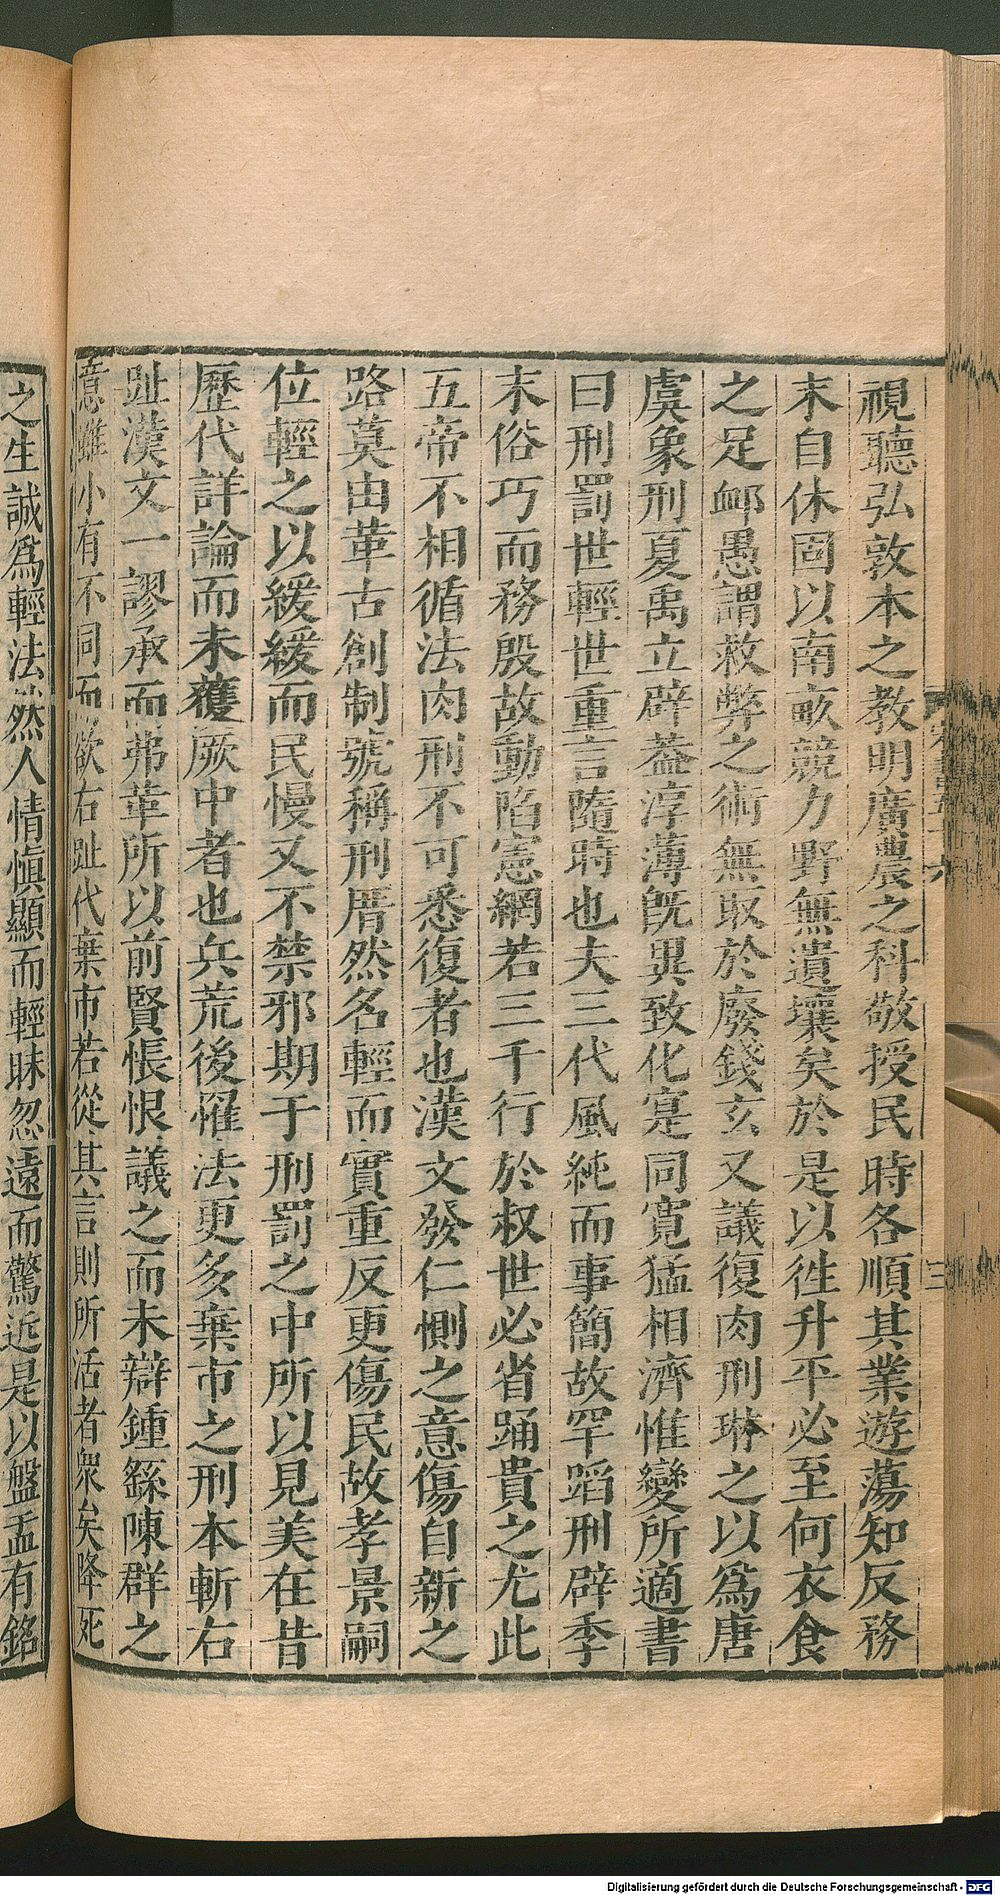 視聽弘敦本之教明廣農之科敬授民時各順其業遊蕩知反務
末自休固以南畝競力野無遺壤矣於是以徃升平必至何衣食
之足䘏愚謂救弊之術無取於廢錢玄又議復肉刑琳之以爲唐
虞象刑夏禹立辟葢淳薄旣異致化寔同寛猛相濟惟變所適書
曰刑罰世輕世重言隨時也夫三代風純而事簡故罕蹈刑辟季
末俗巧而務殷故動陷憲網若三千行於叔世必省踊貴之尤此
五帝不相循法肉刑不可悉復者也漢文發仁惻之意傷自新之
路莫由革古創制號稱刑厝然名輕而實重反更傷民故孝景嗣
位輕之以緩緩而民慢又不禁邪期于刑罰之中所以見美在昔
歷代詳論而未獲厥中者也兵荒後罹法更多棄市之刑本斬右
趾漢文一謬承而弗革所以前賢悵恨議之而未辯鍾繇陳群之
意雖小有不同而欲右趾代棄市若從其言則所活者衆矣降死
之生誠爲輕法然人情愼顯而輕昧忽遠而驚近是以盤盂有銘
三
Digitalisierung gefördert durch die Deutsche Forschungsgemeinschaft - DFG